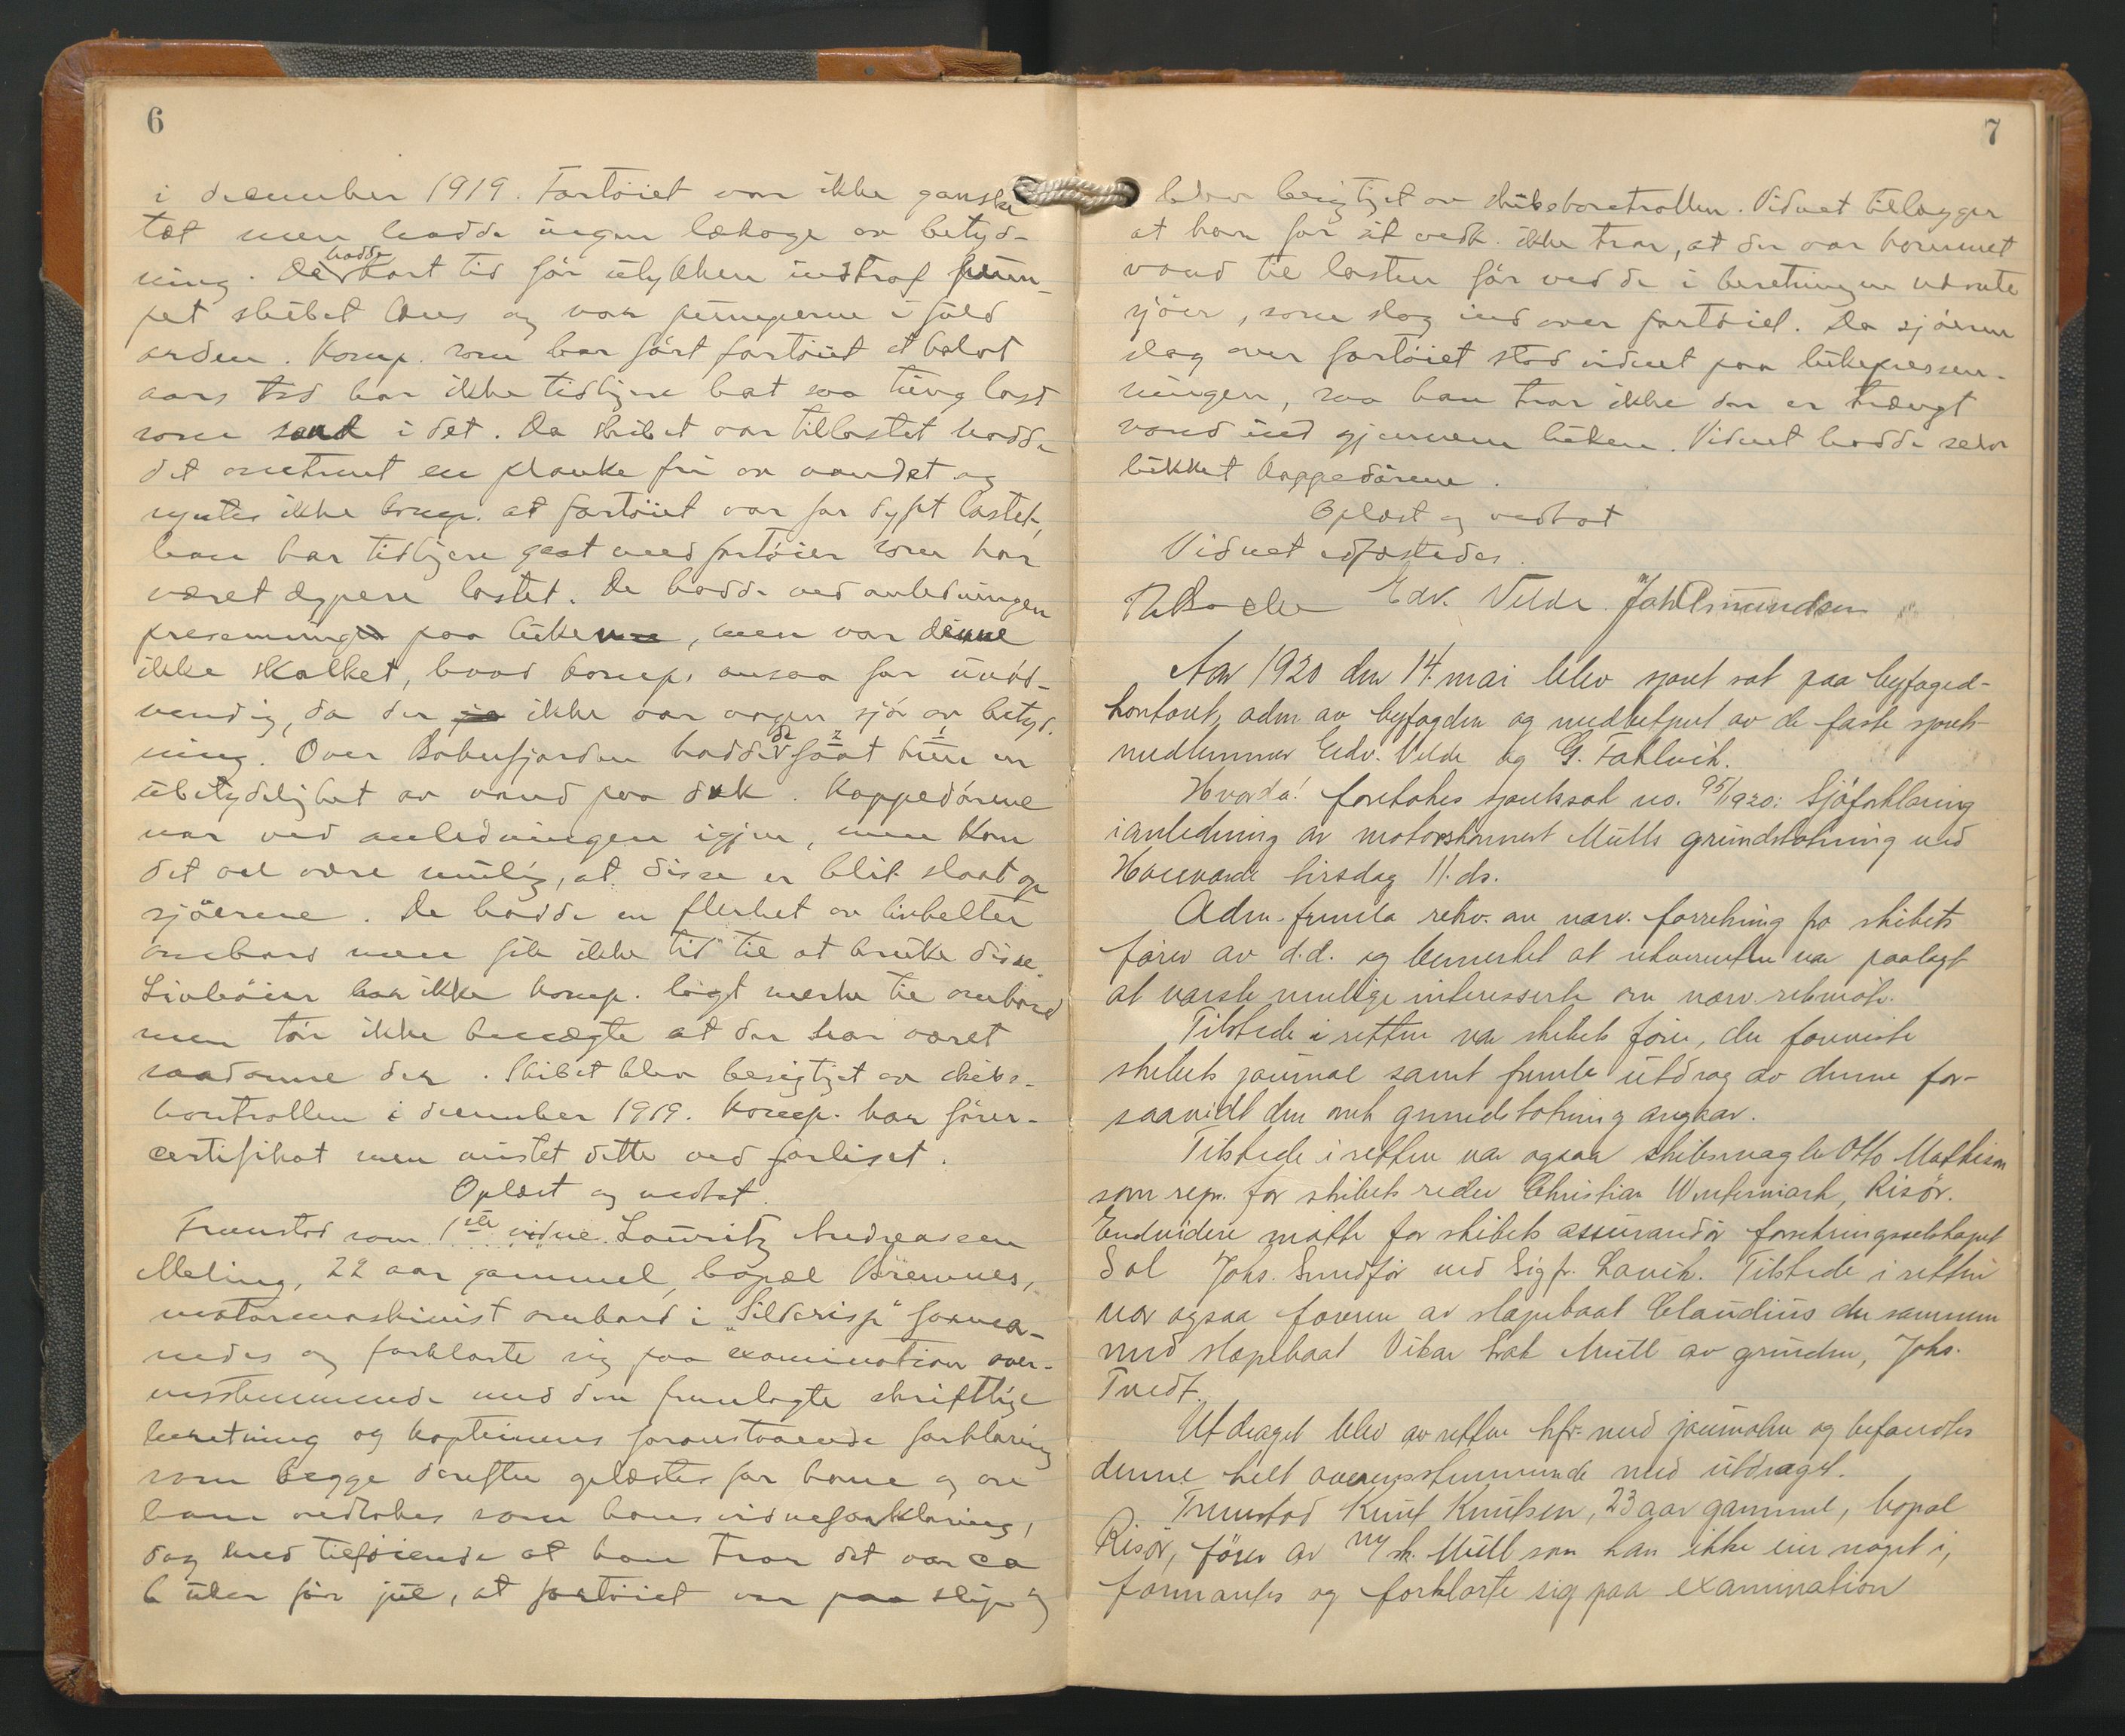 6
i december 1919. Fartöiet var ikke ganske
tæt men hadde ingen lækage av betyd-
ning. De hadde kort tid för ulykken indtraf pum-
pet skibet læns og var pumperne i fuld
orden. Komp. som har fört fartöiet et halvt
aars tid har ikke tidligere hat saa tung last
som sand i det. Da skibet var tillastet hadde
det omtrent en planke fri av vandet og
syntes ikke komp. at fartöiet var for dypt lastet,
han har tidligere gaat med fartöier som har
været dypere lastet. De hadde ved anledningen
presenning paa luken, men var denne
ikke skalket, hvad komp. ansaa for unöd-
vendig, da der ikke var nogen sjö av betyd-
ning. Over Boknfjorden hadde de faat kun en
ubetydelighet av vand paa dæk. Kappedörene
var ved anledningen igjen, men kan
det vel være mulig, at disse er blit slaat op
sjöerne. De hadde en flerhet av livbelter
ombord men fik ikke tid til at bruke disse.
Livböier har ikke komp. lagt merke til ombord
men tör ikke benegte at der har været
saadanne der. Skibet blev besigtiget av skibs-
kontrollen i december 1919. Komp. har förer-
certifikat men mistet dette ved forliset.
Oplæst og vedtat.
Fremstod som 1ste vidne Lauritz Andreassen
Meling, 22 aar gammel, bopæl Bremnes,
motormaskinist ombord i "Sildcrisp" forma-
nedes og forklarte sig paa examination over-
ensstemmende med den fremlagte skriftlige
beretning og kapteinens foranstaaende forklaring
som begge derefter oplæstes for ham og av
ham vedtokes som hans vidneforklaring,
dog med tilföiende at han tror det var ca
6 uker för jul, at fartöiet var paa slip og
7
blev besigtiget av skibskontrollen. Vidnet tillægger
at han for sit vedk. ikke tror, at der var kommet
vand til lasten för ved de i beretningen nævnte
sjöer, som slog ind over fartöiet. Da sjöerne
slog over fartöiet stod vidnet paa lukepresen-
ningen, saa han tror ikke der er trængt
vand ind gjennem luken. Vidnet hadde selv
lukket kappedörene.
Oplæst og vedtat
Vidnet edfæstedes.
Edv. Velde. Joh Asmundsen
Aar 1920 den 14. mai blev sjöret sat paa byfoged-
kontoret, adm. av byfogden og medbetjent av de faste sjörets-
medlemmer Edv. Velde og G. Fahlvik.
Hvorda! foretokes sjöretssak no. 95/1920: Sjöforklaring
i anledning av motorskonnert Mulls grundstötning ved
tirsdag 11. ds.
Adm. fremla rekv. om nærv. forretning fra skibets
förer av d.d. og bemerket at rekvirenten var paalagt
at varsle mulige interesserte om nærv. retsmöte.
Tilstede i retten var skibets förer, der foreviste
skibets journal samt fremla utdrag av denne for-
saavidt den omh. grundstötning angaar.
Tilstede i retten var ogsaa skibsmægler Otto Mathisen
som repr. for skibets reder Christian Wintermark, Risör.
Endvidere mötte for skibets assurandör forsikringsselskapet
Sol Johs. Sundför ved Sigfr. Lavik. Tilstede i retten
var ogsaa föreren av slæpebaat Claudius der sammen
med slæpebaat Vikar trak Mull av grunden, Johs.
Tvedt.
Utdraget blev av retten kfr. med journalen og befandtes
denne helt overensstemmende med utdraget.
Fremstod Knut Knutsen, 23 aar gammel, bopæl
Risör, förer av m/sk. Mull som han ikke eier noget i,
formantes og forklarte sig paa examination